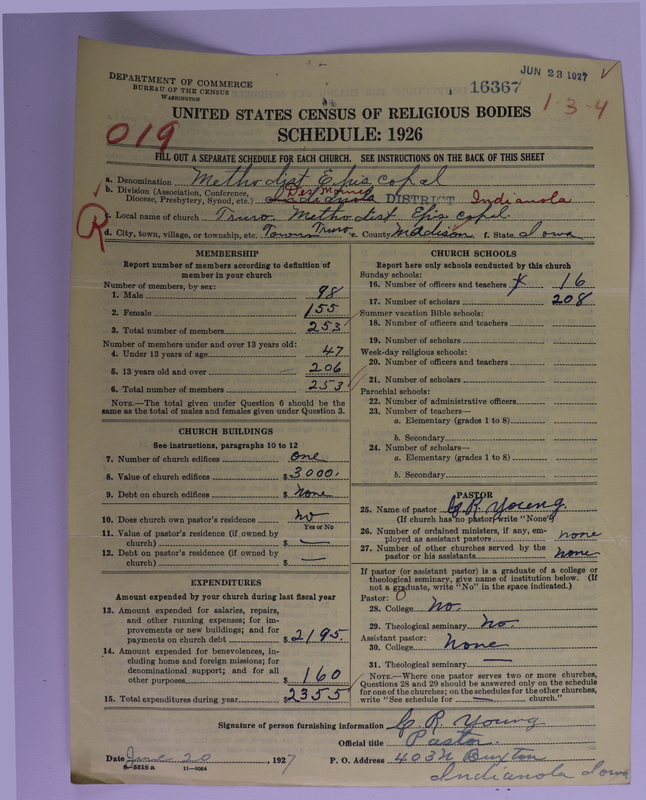 JUN 23 1927
DEPARTMENT OF COMMERCE
BUREAU OF THE CENSUS
WASHINGTON
16367
1-3-4
UNITED STATES CENSUS OF RELIGIOUS BODIES
SCHEDULE: 1926
019
FILL OUT A SEPARATE SCHEDULE FOR EACH CHURCH. SEE INSTRUCTIONS ON THE BACK OF THIS SHEET
a. Denomination Methodist Episcopal
b. Division (Association, Conference, Diocese, Presbytery, Synod, etc.) Indianola Des Moines DISTRICT Indianola
R
c. Local name of church Truro Methodist Epis copal
d. City, town, village, or township, etc. Town Truro e. County Maddison f. State Iowa
MEMBERSHIP
Report number of members according to definition of
member in your church
Number of members, by sex:
1. Male 98
2. Female 155
3. Total number of members 253
Number of members under and over 13 years old:
4. Under 13 years of age 47
5. 13 years old and over 206
6. Total number of members 253
NOTE.—The total given under Question 6 should be
same as the total of males and females given under Question 3.
CHURCH BUILDINGS
See instructions, paragraphs 10 to 12
7. Number of church edifices one
8. Value of church edifices $ 3000.
9. Debt on church edifices $ none
10. Does church own pastor's residence no
Yes or No
11. Value of pastor's residence (if owned by
church) $ —
12. Debt on pastor's residence (if owned by
church) $ —
EXPENDITURES
Amount expended by your church during last fiscal year
13. Amount expended for salaries, repairs,
and other running expenses; for im-
provements or new buildings; and for
payments on church debt $ 2195
14. Amount expended for benevolences, in-
cluding home and foreign missions; for
denominational support; and for all
other purposes $ 160
15. Total expenditures during year $ 2355
CHURCH SCHOOLS
Report here only schools conducted by this church
Sunday schools:
16. Number of officers and teachers 16
17. Number of scholars 208
Summer vacation Bible schools:
18. Number of officers and teachers
19. Number of scholars
Week-day religious schools:
20. Number of officers and teachers
21. Number of scholars
Parochial schools:
22. Number of administrative officers
23. Number of teachers—
a. Elementary (grades 1 to 8)
b. Secondary
24. Number of scholars—
a. Elementary (grades 1 to 8)
b. Secondary
PASTOR
25. Name of pastor C. R. Young
(If church has no pastor, write "None")
26. Number of ordained ministers, if any, em-
ployed as assistant pastors none
27. Number of other churches served by the
pastor or his assistants none
If pastor (or assistant pastor) is a graduate of a college or
theological seminary, give name of institution below. (If
not a graduate, write "No" in the space indicated.)
Pastor: 0
28. College No.
29. Theological seminary No.
Assistant pastor:
30. College None
31. Theological seminary —
NOTE.—Where one pastor serves two or more churches,
Questions 28 and 29 should be answered only on the schedule
for one of the churches; on the schedules for the other churches,
write "See schedule for — church."
Signature of person furnishing information C. R. Young
Official title Pastor.
Date June 20, 1927 P. O. Address 403 N Buxton
8-5518 a 11-9084
Indianola Iowa